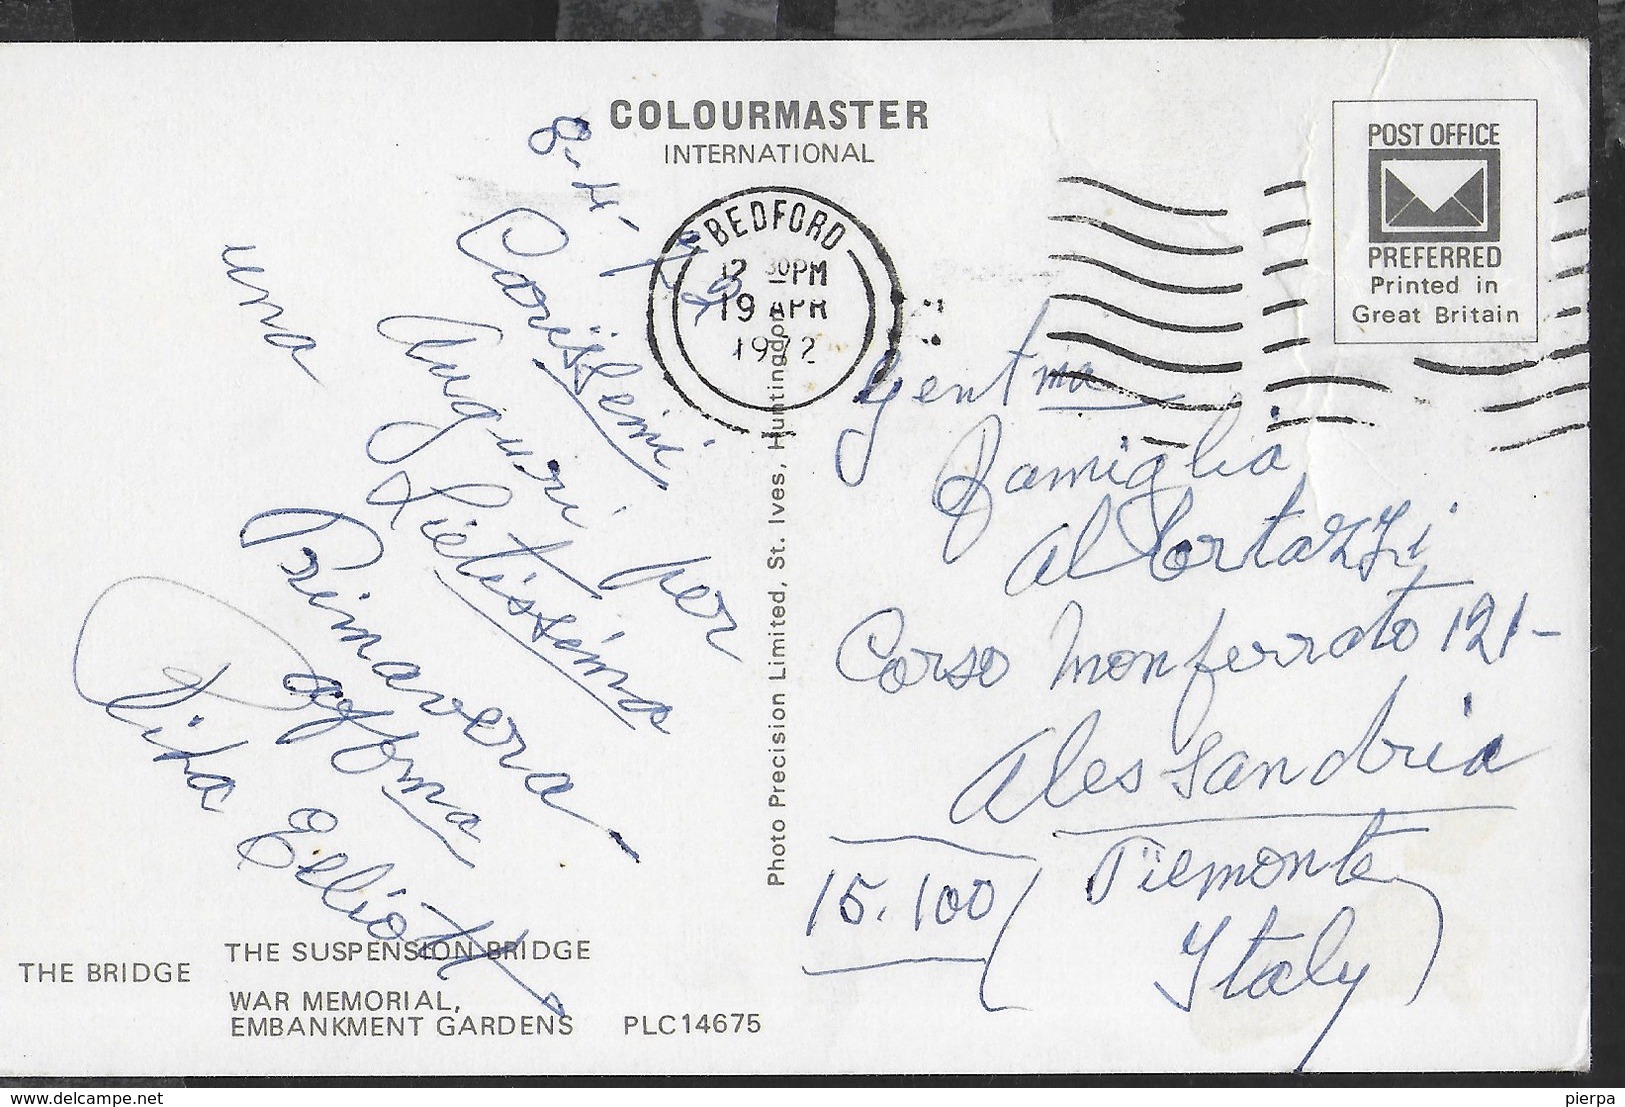 COLOURMASTER
INTERNATIONAL
POST OFFICE
PREFERRED
Printed in
Great Britain
BEDFORD
12 30PM
19 APR
1972
8-4-72
Carissimi
Auguri per
una
Lietissima
Primavera
Rita Elliott
Photo Precision Limited, St. Ives, Huntingdon
Gent ma
Famiglia
Al Cortazzi
Corso Monferrato 121-
Alessandria
15.100 (Piemonte)
Italy
THE BRIDGE
THE SUSPENSION BRIDGE
WAR MEMORIAL,
EMBANKMENT GARDENS
PLC14675
www.delcampe.net
pierpa